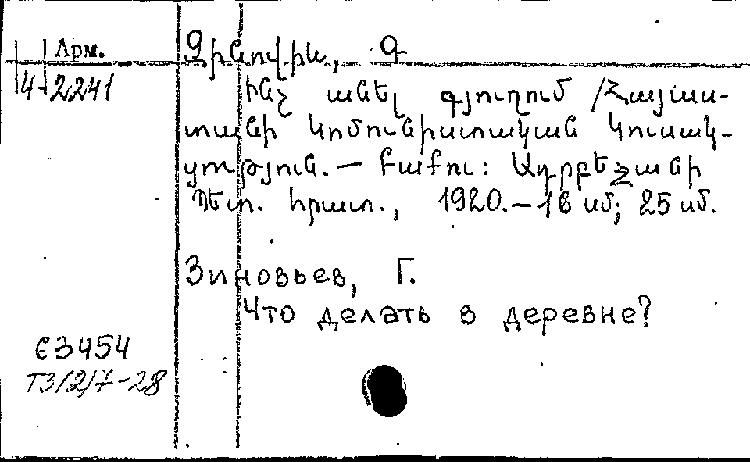 Арм.
4-2241
Զինովիև, Գ
Ինչ անել գյուղում /Հայաս-
տանի կոմունիստական կուսակ-
ցություն. — Բաքու: Ադրբեջանի
Պետ. հրատ., 1920. — 16 սմ; 25 սմ.
Зиновьев, Г.
Что делать в деревне?
Є3454
Т3/2/7-28